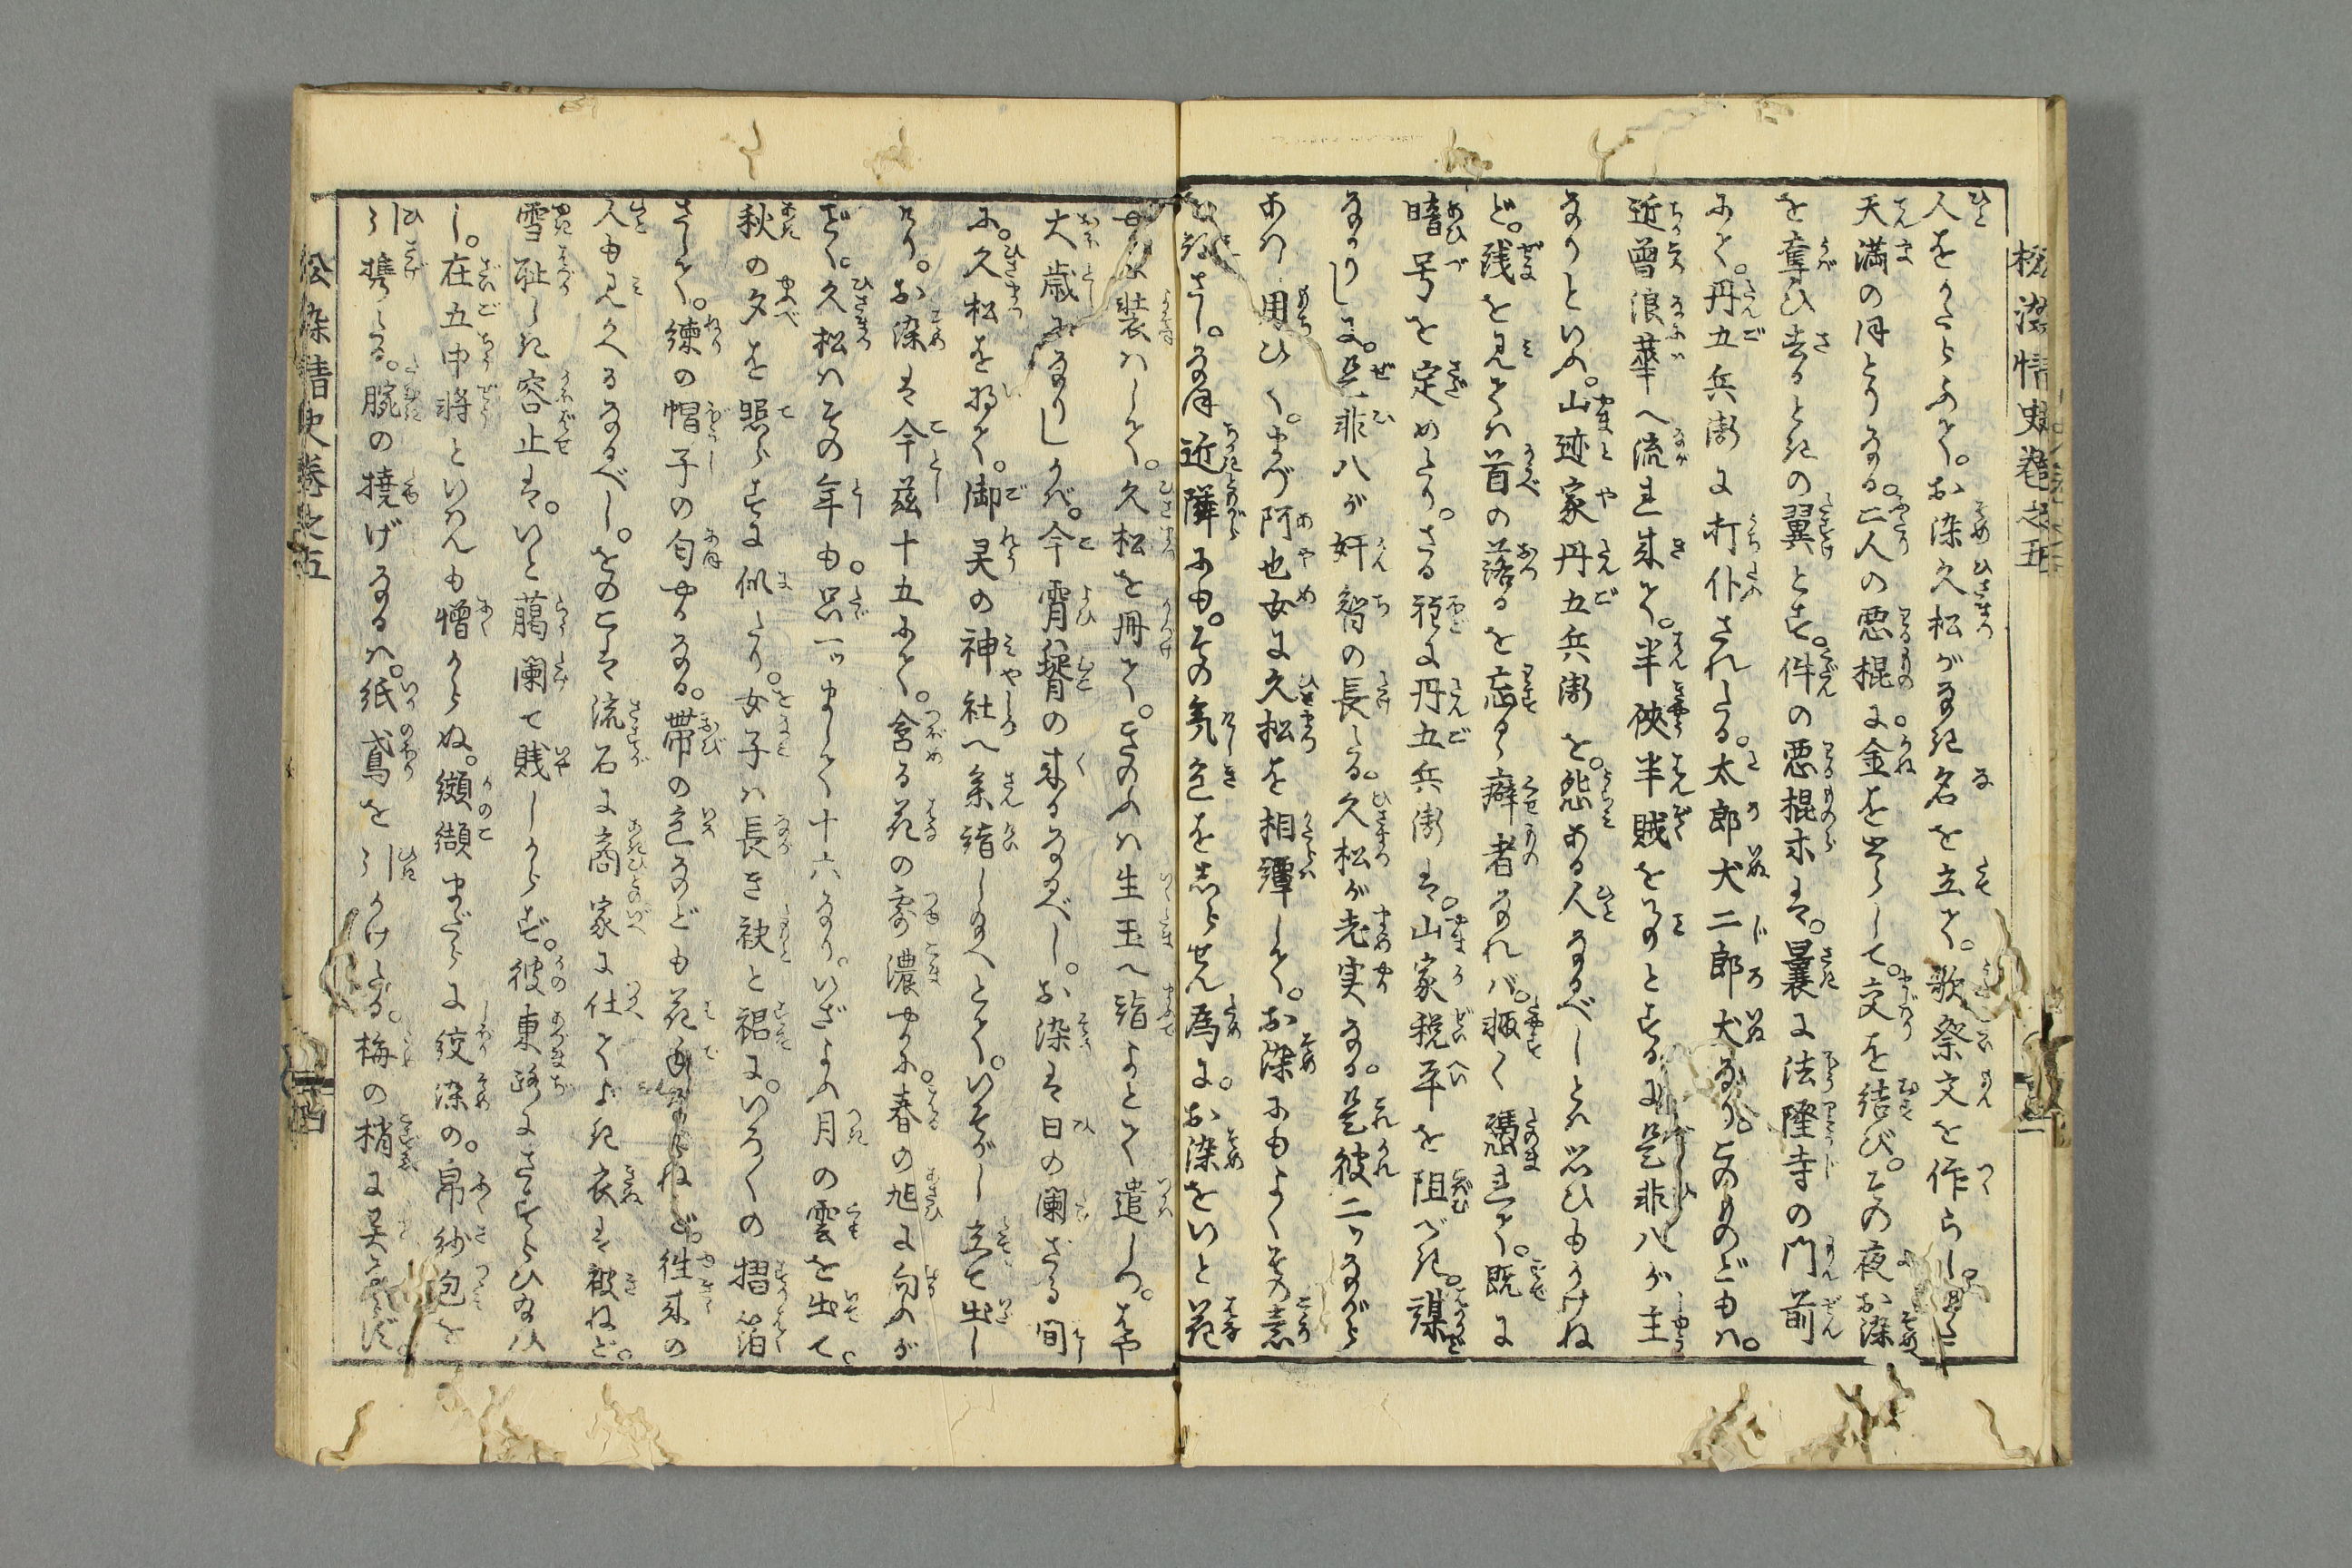 松染情史巻之五
人をかたらふて。お染久松がなき名を立て。歌祭文を作らし。
天満のほとりなる。二人の悪棍に金を出らして。交を結び。その夜お染
を奪ひ去るときの翼とす。件の悪棍等は。曩に法隆寺の門前
にて。丹五兵衛に打仆されたる。太郎犬二郎犬なり。このものどもハ。
近曽浪華へ流れ来て。半俠半賊をわのとする に是非八が主
なりといふ。山迹家丹五兵衛を。怨ある人なるべしとハ思ひもかけね
ど。銭を見てハ首の落るを忘るゝ癖者なれバ。輙く憑れて。既に
暗号を定めたり。さる程に丹五兵衛は。山家税平を阻べき。謀
なかりしに。是非八が奸智の長たる。久松が老実なる。是彼二ッながら
あハ用ひて。まづ阿也女に久松を相譚して。お染にもよくその意
さし。なほ近隣にも。その気色をしらせん為に。お染をいと花
やかに装ハして。久松を冊て。きのふハ生玉へ詣よとて遣しつ。はや
大歳になりしかバ。今霄ハ壻の来るなるべし。お染は日の闌ざる間
に。久松を将て。御灵の神社へ参詣しなへとて。いそがし立て出し
けり。お染は今茲十五にて。含る花の露濃やかに。春の旭に匂ふが
ごとく。久松ハその年も。只一ッましく十六なり。いざよふ月の雲を出て。
秋の夕を照らすに似たり。女子ハ長き袂と裾に。いろ〱の摺箔
さして。練の帽子の匂やかなる。帯の色なども花 ねど。徃来の
人も見かへるなるべし。をのこは流石に商家に仕てよき衣は被ねど。
雪耻しき容止は。いと﨟闌て賤しからず。彼東路にさすらひなハ
し。在五中将といはんも憎からぬ。纐纈まだらに絞染の。帛紗包を
引提たる。腕の撓げなるハ。紙鳶を引かけたる。梅の梢に異ならず。
松染情史巻之五